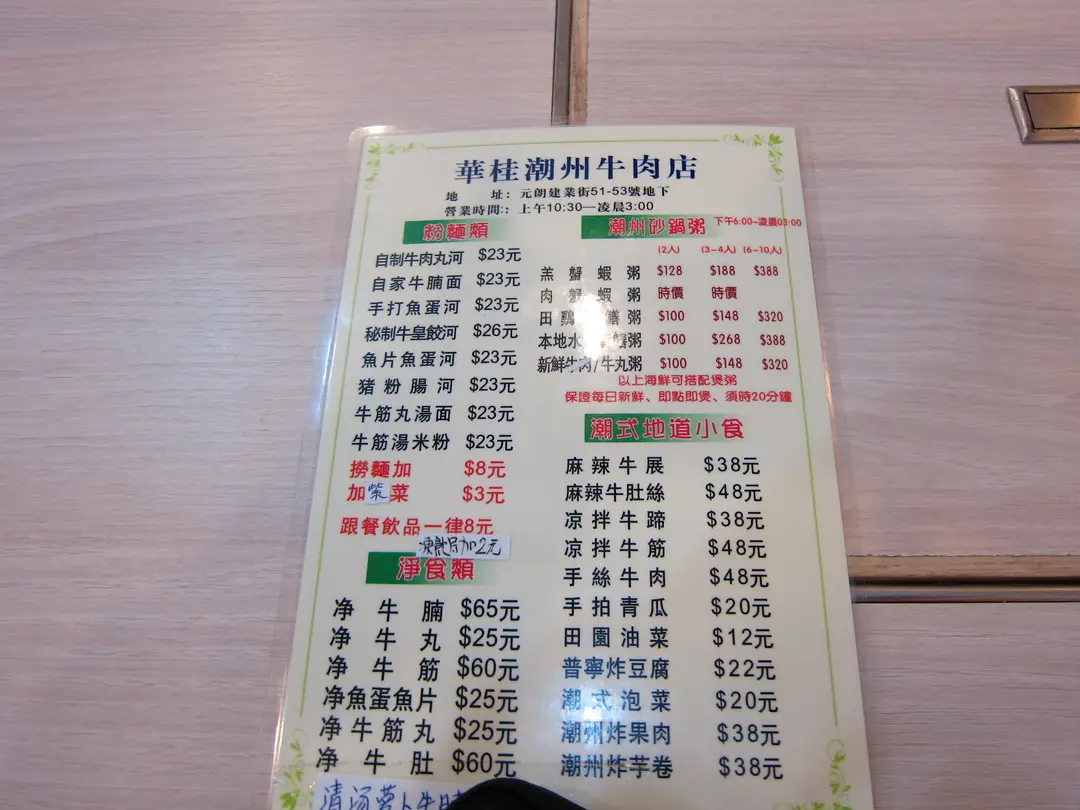 華桂潮州牛肉店
地 址：元朗建業街51-53號地下
營業時間：: 上午10:30—凌晨3:00
粉麵類
自制牛肉丸河 $23元
自家牛腩面 $23元
手打魚蛋河 $23元
秘制牛皇餃河 $26元
魚片魚蛋河 $23元
猪粉腸河 $23元
牛筋丸湯面 $23元
牛筋湯米粉 $23元
撈麵加 $8元
加紫菜 $3元
跟餐飲品一律8元
凍飲另加2元
淨食類
净牛腩 $65元
净牛丸 $25元
净牛筋 $60元
净魚蛋魚片 $25元
净牛筋丸 $25元
净牛肚 $60元
清汤萝卜牛
潮州砂鍋粥 下午6:00-凌晨03:00
(2人) (3-4人) (6-10人)
羔蟹蝦粥 $128 $188 $388
肉蟹蝦粥 時價 時價
田鷄 鱔粥 $100 $148 $320
本地水 粥 $100 $268 $388
新鮮牛肉/牛丸粥 $100 $148 $320
以上海鮮可搭配煲粥
保證每日新鮮、即點即煲、須時20分鐘
潮式地道小食
麻辣牛展 $38元
麻辣牛肚絲 $48元
凉拌牛蹄 $38元
凉拌牛筋 $48元
手絲牛肉 $48元
手拍青瓜 $20元
田園油菜 $12元
普寧炸豆腐 $22元
潮式泡菜 $20元
潮州炸果肉 $38元
潮州炸芋卷 $38元